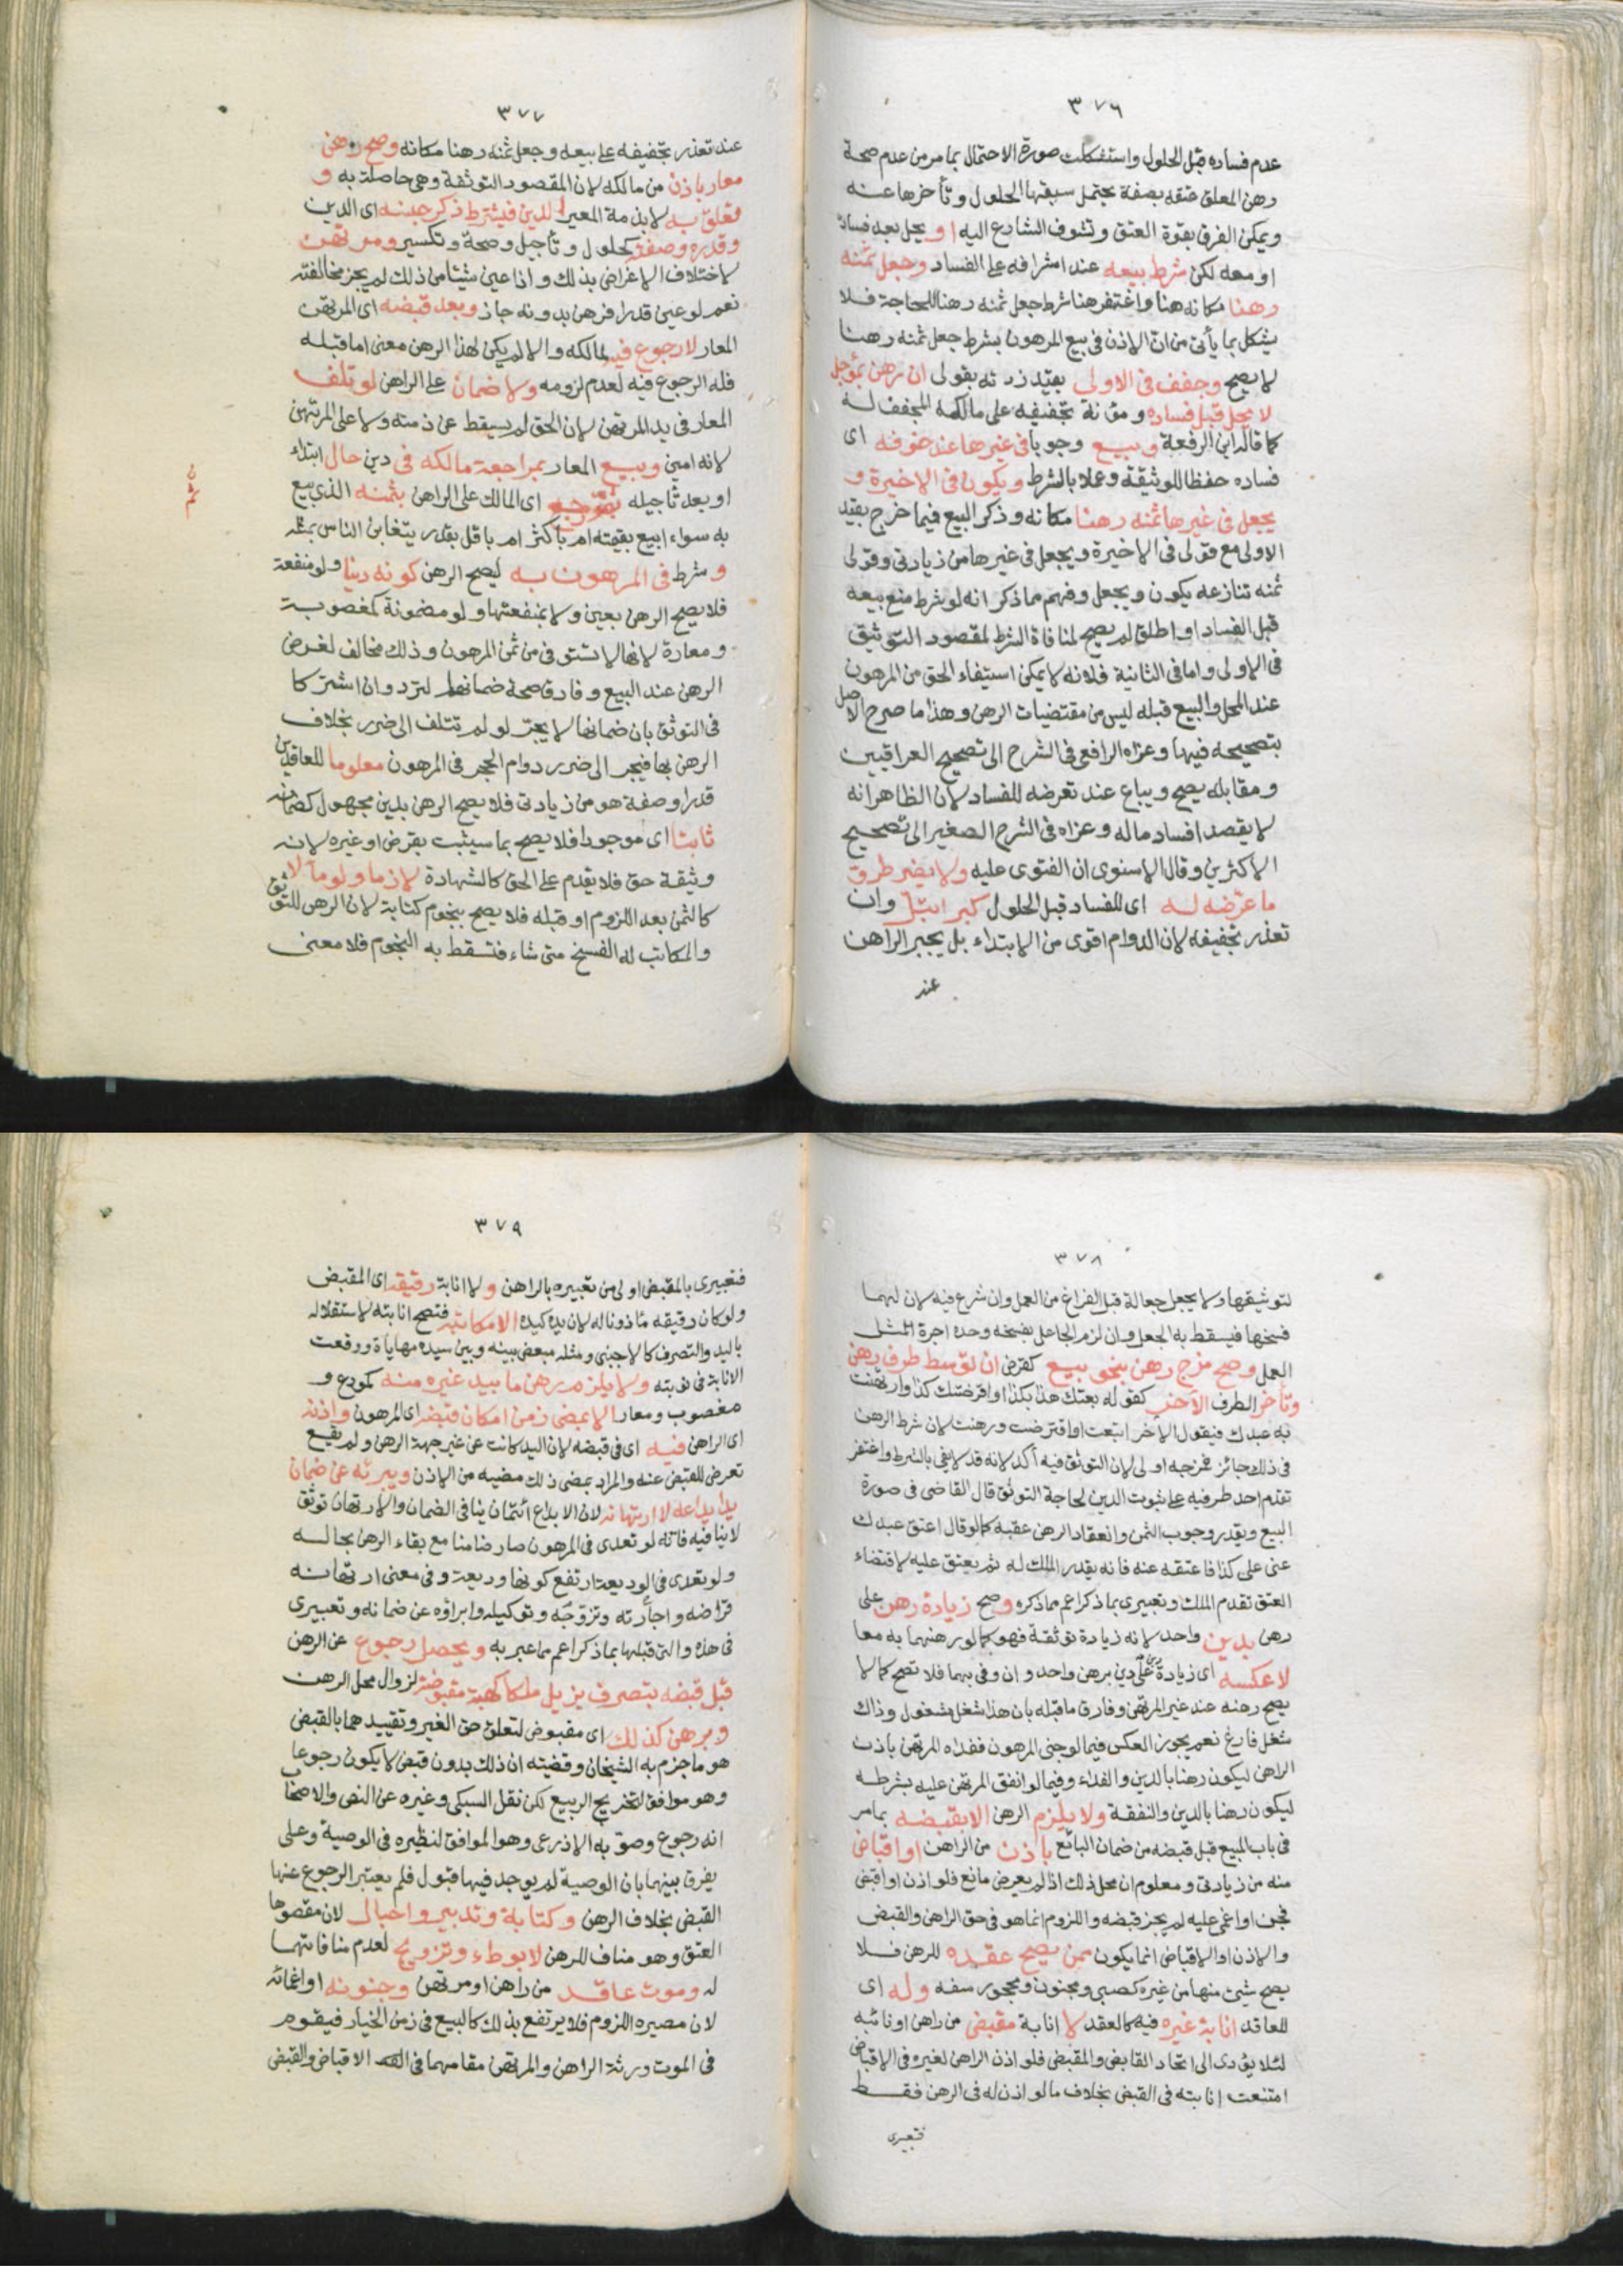 ٣٧٦
عدم فساده قبل الحلول واستشكلت صورة الاحتمال بما مر من عدم صحة
رهن المعلق عتقه بصفة يحتمل سبقها الحلول وتأخرها عنه
ويمكن الفرق بقوة العتق وتشوف الشارع اليه او يحل بعد فساده
او معه لكن شرط بيعه عند اشرافه على الفساد وجعل ثمنه
رهنا مكانه هنا واغتفر هنا شرط جعل ثمنه رهنا للحاجة فلا
يشكل بما يأتى من ان الاذن فى بيع المرهون بشرط جعل ثمنه رهنا
لا يصح وجفف فى الاولى بقيد زدته بقولى ان رهن بمؤجل
لا يحل قبل فساده ومؤنة تجفيفه على مالكه المجفف له
كما قاله ابن الرفعة وبيع وجوبا فى غيرها عند خوفه اى
فساده حفظا للوثيقة وعملا بالشرط ويكون فى الاخيرة و
يجعل فى غيرها ثمنه رهنا مكانه وذكر البيع فيما خرج بقيد
الاولى مع قولى فى الاخيرة ويجعل فى غيرها من زيادتى وقولى
ثمنه تنازعه يكون ويجعل وفهم مما ذكر انه لو شرط منع بيعه
قبل الفساد او اطلق لم يصح لمنافاة الشرط لمقصود التوثيق
فى الاولى واما فى الثانية فلانه لا يمكن استيفاء الحق من المرهون
عند المحل والبيع قبله ليس من مقتضيات الرهن وهذا ما صرح الاصل
بتصحيحه فيها وعزاه الرافعى فى الشرح الى تصحيح العراقيين
ومقابله يصح ويباع عند تعرضه للفساد لان الظاهر انه
لا يقصد افساد ماله وعزاه فى الشرح الصغير الى تصحيح
الاكثرين وقال الاسنوى ان الفتوى عليه ولا يضر طرو
ما عرضه له اى للفساد قبل الحلول كبر ابتل وان
تعذر تجفيفه لان الدوام اقوى من الابتداء بل يجبر الراهن
عند
٣٧٧
عند تعذر تجفيفه على بيعه وجعل ثمنه رهنا مكانه وصح رهن
معار باذن من مالكه لان المقصود التوثقة وهى حاصلة به و
تعلق به لا بذمة المعير الدين فيشترط ذكر جنسه اى الدين
وقدره وصفته كحلول وتأجيل وصحة وتكسير ومرتهن
لاختلاف الاغراض بذلك واذا عين شيئا من ذلك لم يجز مخالفته
نعم لو عين قدرا فرهن بدونه جاز وبعد قبضه اى المرتهن
المعار لا رجوع فيه لمالكه والا لم يكن لهذا الرهن معنى اما قبله
فله الرجوع فيه لعدم لزومه ولا ضمان على الراهن لو تلف
المعار فى يد المرتهن لان الحق لم يسقط عن ذمته ولا على المرتهن
لانه امين وبيع المعار بمراجعة مالكه فى دين حال ابتداء
او بعد تأجيله اى المالك على الراهن بثمنه الذى بيع
به سواء ابيع بقيمته ام باكثر ام باقل بقدر يتغابن الناس بمثله
و شرط فى المرهون به ليصح الرهن كونه دينا ولو منفعة
فلا يصح الرهن بعين ولا بمنفعتها ولو مضمونة كمغصوبة
ومعارة لانها لا تستوفى من ثمن المرهون وذلك مخالف لغرض
الرهن عند البيع وفارق صحة ضمانها لترد وان اشتركا
فى التوثق بان ضمانها لا يجر لو لم تتلف الى ضرر بخلاف
الرهن بها فيجر الى ضرر دوام الحجر فى المرهون معلوما للعاقدين
قدرا وصفة هو من زيادتى فلا يصح الرهن بدين مجهول كضمانه
ثابتا اى موجودا فلا يصح بما سيثبت بقرض او غيره لانه
وثيقة حق فلا يقدم على الحق كالشهادة لازما ولو مآلا
كالثمن بعد اللزوم او قبله فلا يصح بنجوم كتابة لان الرهن للتوثق
والمكاتب له الفسخ متى شاء فتسقط به النجوم فلا معنى
٣٧٨
لتوثيقها ولا بجعل جعالة قبل الفراغ من العمل وان شرع فيه لان لهما
فسخها فيسقط به الجعل وان لزم الجاعل بفسخه وحده اجرة المثل
العمل وصح مزج رهن بنحو بيع كقرض ان توسط طرف رهن
وتأخر الطرف الآخر كقوله بعتك هذا بكذا او اقرضتك كذا وارتهنت
به عبدك فيقول الآخر ابتعت او اقترضت ورهنت لان شرط الرهن
فى ذلك جائز فمزجه اولى لان التوثق فيه آكد لانه قد لا يفى بالشرط واغتفر
تقدم احد طرفيه على ثبوت الدين لحاجة التوثق قال القاضى فى صورة
البيع ويقدر وجوب الثمن وانعقاد الرهن عقبه كما لو قال اعتق عبدك
عنى على كذا فاعتقه عنه فانه يقدر الملك له ثم يعتق عليه لاقتضاء
العتق تقدم الملك وتعبيرى بما ذكر اعم مما ذكره وصح زيادة رهن على
رهن بدين واحد لانه زيادة توثقة فهو كما لو رهنهما به معا
لا عكسه اى زيادة دين على دين برهن واحد وان وفى بهما فلا تصح كما لا
يصح رهنه عند غير المرتهن وفارق ما قبله بان هذا شغل مشغول وذاك
شغل فارغ نعم يجوز العكس فيما لو جنى المرهون ففداه المرتهن باذن
الراهن ليكون رهنا بالدين والفداء وفيما لو انفق المرتهن عليه بشرطه
ليكون رهنا بالدين والنفقة ولا يلزم الرهن الا بقبضه بما مر
فى باب المبيع قبل قبضه من ضمان البائع باذن من الراهن او اقباض
منه من زيادتى ومعلوم ان محل ذلك اذا لم يعرض مانع فلو اذن او اقبض
فجن او اغمى عليه لم يجز قبضه واللزوم انما هو فى حق الراهن والقبض
والاذن او الاقباض انما يكون ممن يصح عقده للرهن فلا
يصح شىء منها من غيره كصبى ومجنون ومحجور سفه وله اى
للعاقد انابة غيره فيه كالعقد لا انابة مقبض من راهن او نائبه
لئلا يؤدى الى اتحاد القابض والمقبض فلو اذن الراهن لغيره فى الاقباض
امتنعت انابته فى القبض بخلاف ما لو اذن له فى الرهن فقط
فتعبيرى
٣٧٩
فتعبيرى بالمقبض اولى من تعبيره بالراهن ولا انابة رقيقه اى المقبض
ولو كان رقيقه مأذونا له لان يده كيده الا مكاتبه فتصح انابته لاستقلاله
باليد والتصرف كالاجنبى ومثله مبعض بينه وبين سيده مهايأة ووقعت
الانابة فى نوبته ولا يلزم رهن ما بيد غيره منه كمودع و
مغصوب ومعار الا بمضى زمن امكان قبضه اى المرهون واذنه
اى الراهن فيه اى فى قبضه لان اليد كانت عن غير جهة الرهن ولم يقع
تعرض للقبض عنه والمراد بمضى ذلك مضيه من الاذن ويبرئه عن ضمان
يد ايداعه لا ارتهانه لان الايداع ائتمان ينافى الضمان والارتهان توثق
لا ينافيه فانه لو تعدى فى المرهون صار ضامنا مع بقاء الرهن بحاله
ولو تعدى فى الوديعة ارتفع كونها وديعة وفى معنى ارتهانه
قراضه واجارته وتزوجه وتوكيله وابراؤه عن ضمانه وتعبيرى
فى هذه والتى قبلها بما ذكر اعم مما عبر به ويحصل رجوع عن الرهن
قبل قبضه بتصرف يزيل ملكا كهبة مقبوضة لزوال محل الرهن
وبرهن كذلك اى مقبوض لتعلق حق الغير وتقييدهما بالقبض
هو ما جزم به الشيخان وقضيته ان ذلك بدون قبض لا يكون رجوعا
وهو موافق لتخريج الربيع لكن نقل السبكى وغيره عن النص والاصحاب
انه رجوع وصوبه الاذرعى وهو الموافق لنظيره فى الوصية وعلى
يفرق بينهما بان الوصية لم يوجد فيها قبول فلم يعتبر الرجوع عنها
القبض بخلاف الرهن وكتابة وتدبير واحبال لان مقصودها
العتق وهو مناف للرهن لا بوطء وتزويج لعدم منافاتهما
له وموت عاقد من راهن او مرتهن وجنونه او اغمائه
لان مصيره اللزوم فلا يرتفع بذلك كالبيع فى زمن الخيار فيقوم
فى الموت ورثة الراهن والمرتهن مقامهما فى الاقباض والقبض